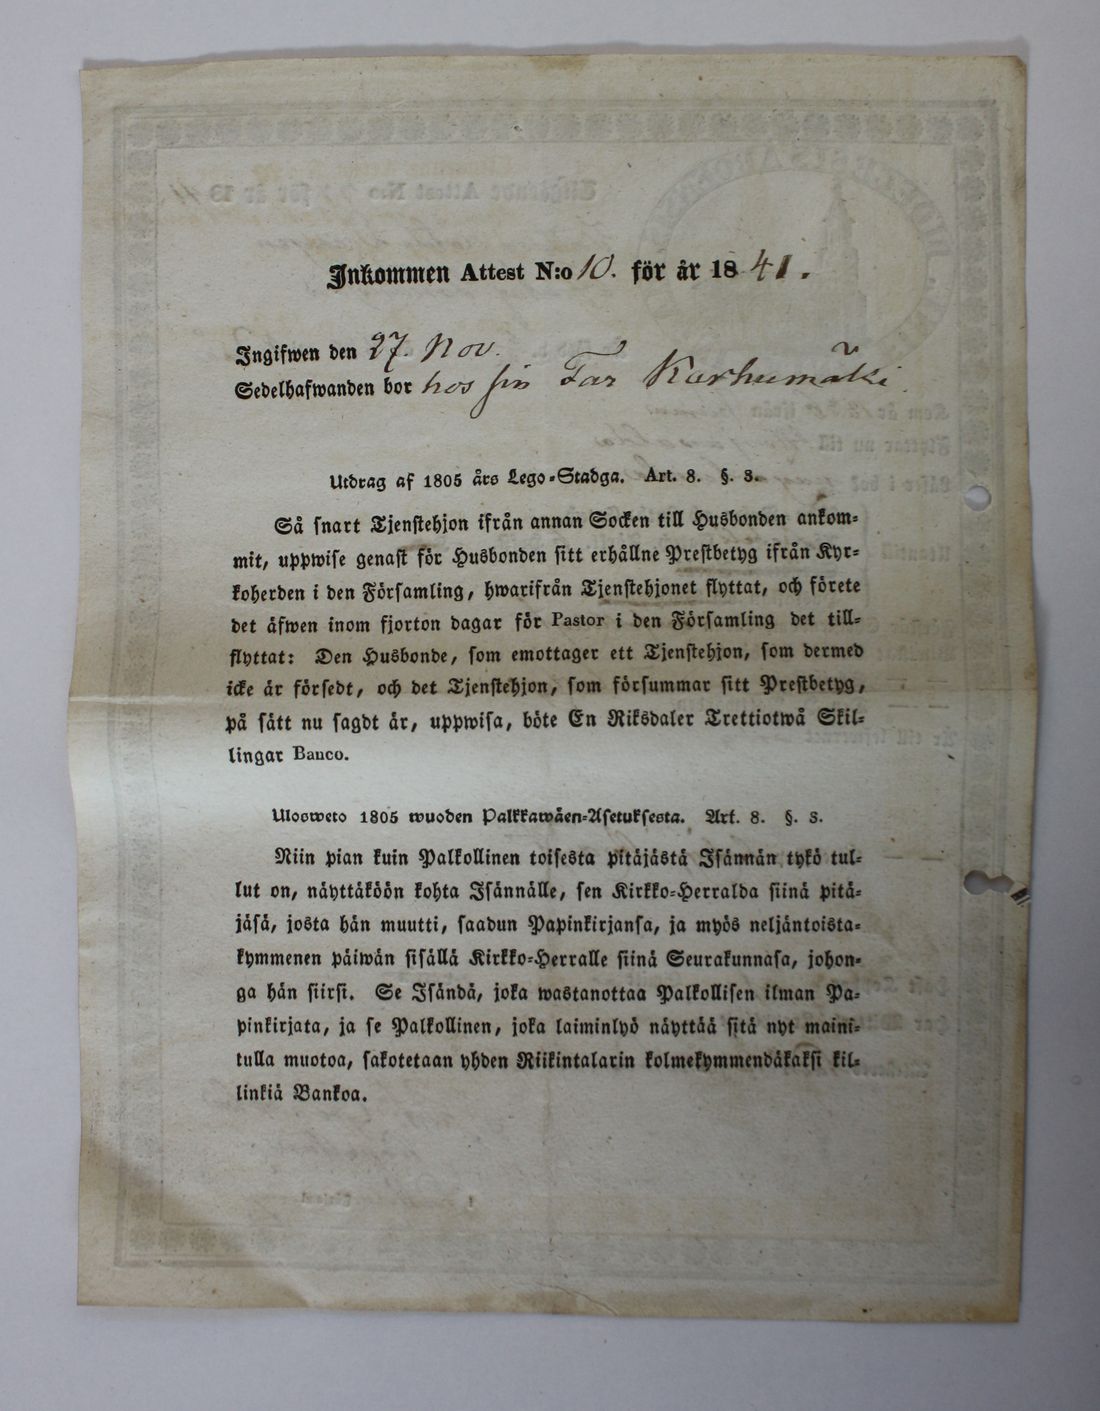 Inkommen Attest N:o 10. för år 1841.
Ingifwen den 27. Nov.
Sedelhafwanden bor hos sin Far Karhumäki
Utdrag af 1805 års Lego-Stadga. Art. 8. §. 3.
Så snart Tjenstehjon ifrån annan Socken till Husbonden ankom-
mit, uppwise genast för Husbonden sitt erhållne Prestbetyg ifrån Kyr-
koherden i den Församling, hwarifrån Tjenstehjonet flyttat, och förete
det äfwen inom fjorton dagar för Pastor i den Församling det till-
flyttat: Den Husbonde, som emottager ett Tjenstehjon, som dermed
icke är försedt, och det Tjenstehjon, som försummar sitt Prestbetyg,
på sätt nu sagdt är, uppwisa, böte En Riksdaler Trettiotwå Skil-
lingar Banco.
Ulosweto 1805 wuoden Palkkawäen-Asetuksesta. Art. 8. §. 3.
Niin pian kuin Palkollinen toisesta pitäjästä Isännän tykö tul-
lut on, näyttäköön kohta Isännälle, sen Kirkko-Herralda siinä pitä-
jäsä, josta hän muutti, saadun Papinkirjansa, ja myös neljäntoista-
kymmenen päiwän sisällä Kirkko-Herralle siinä Seurakunnasa, johon-
ga hän siirsi. Se Isändä, joka wastanottaa Palkollisen ilman Pa-
pinkirjata, ja se Palkollinen, joka laiminlyö näyttää sitä nyt maini-
tulla muotoa, sakotetaan yhden Riikintalarin kolmekymmendäkaksi kil-
linkiä Bankoa.